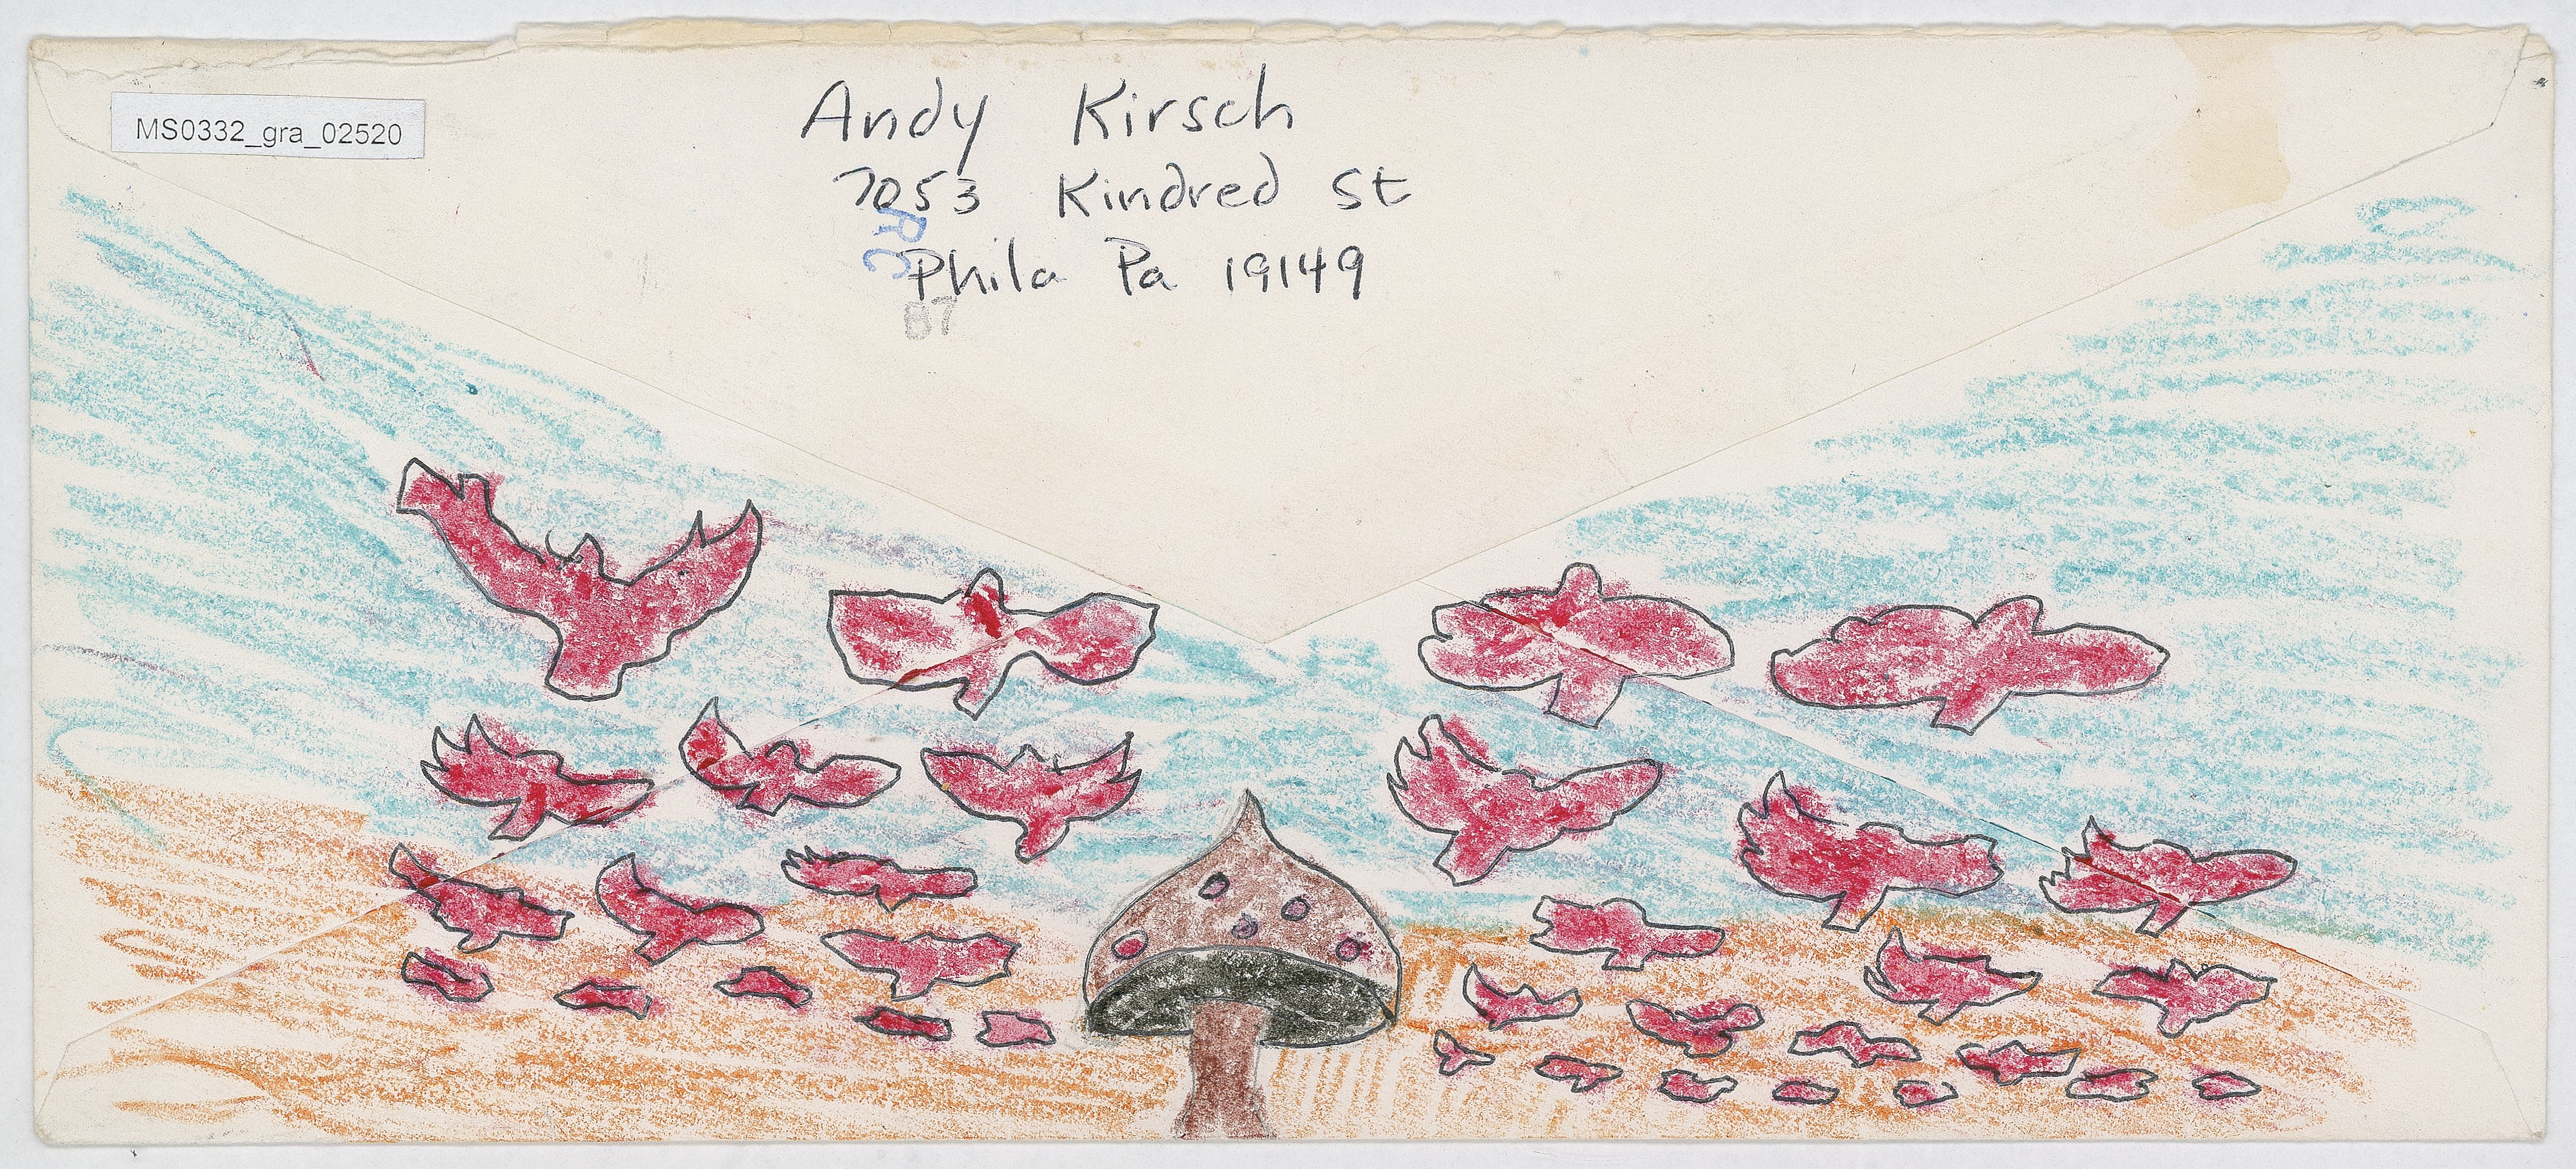 MS0332_gra_02520
Andy Kirsch
7053 Kindred St
Phila Pa 19149
B7